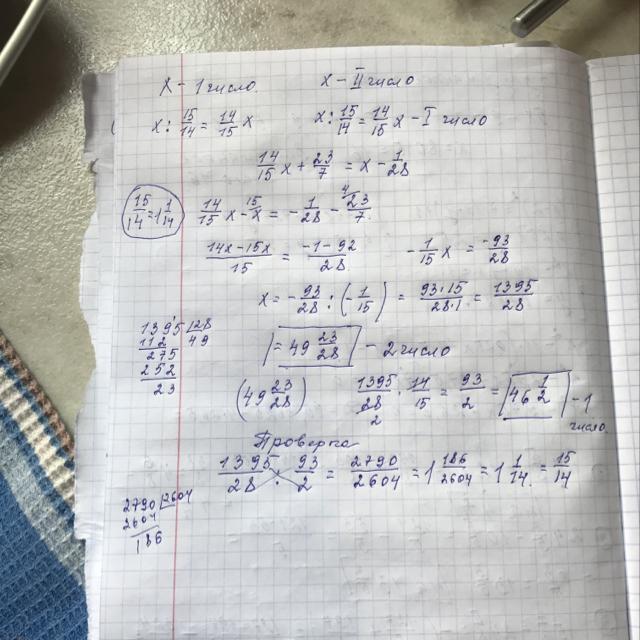 x - 1 число    x - II число
x : 15/14 = 14/15 x    x : 15/14 = 14/15 x - I число
14/15 x + 23/7 = x - 1/28
15/14 = 1 1/14    14/15 x - x = - 1/28 - 23/7
(14x - 15x)/15 = (-1 - 92)/28    - 1/15 x = -93/28
x = - 93/28 : (- 1/15) = 93·15/28·1 = 1395/28
1395 | 28
112    49
275
252
23
= 49 23/28 - 2 число
(49 23/28)    1395/28 · 14/15 = 93/2 = 46 1/2 - 1 число
Проверка
1395/28 : 93/2 = 2790/2604 = 1 186/2604 = 1 1/14 = 15/14
2790 | 2604
2604
186